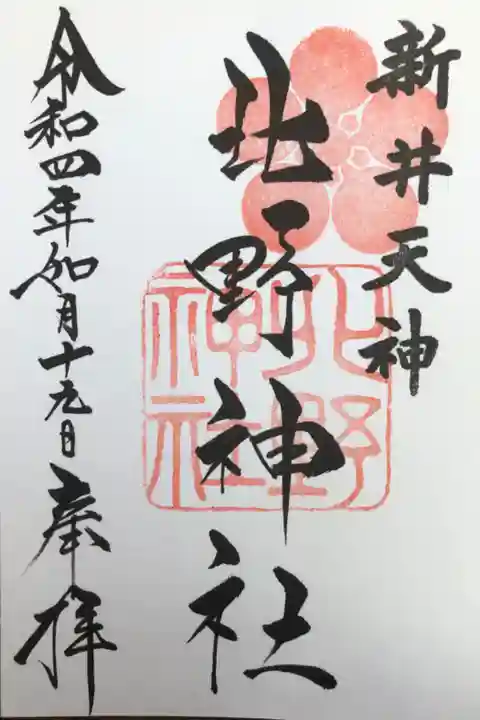 新井天神
北野神社
北野
神社
令和四年如月十九日 奉拝